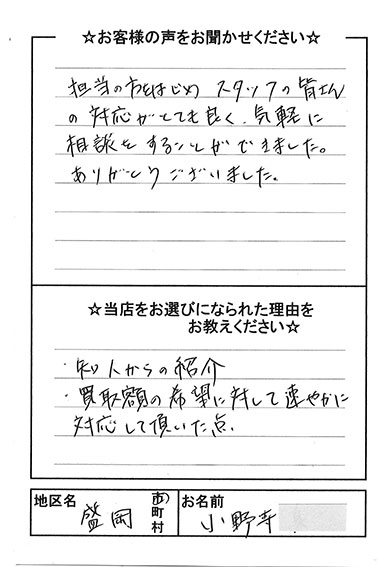 ☆お客様の声をお聞かせください☆
担当の方をはじめ スタッフの皆さん
の対応がとても良く、気軽に
相談をすることができました。
ありがとうございました。
☆当店をお選びになられた理由を
お教えください☆
・知人からの紹介
・買取額の希望に対して速やかに
対応して頂いた点.
地区名 盛岡 市町村
お名前 小野寺